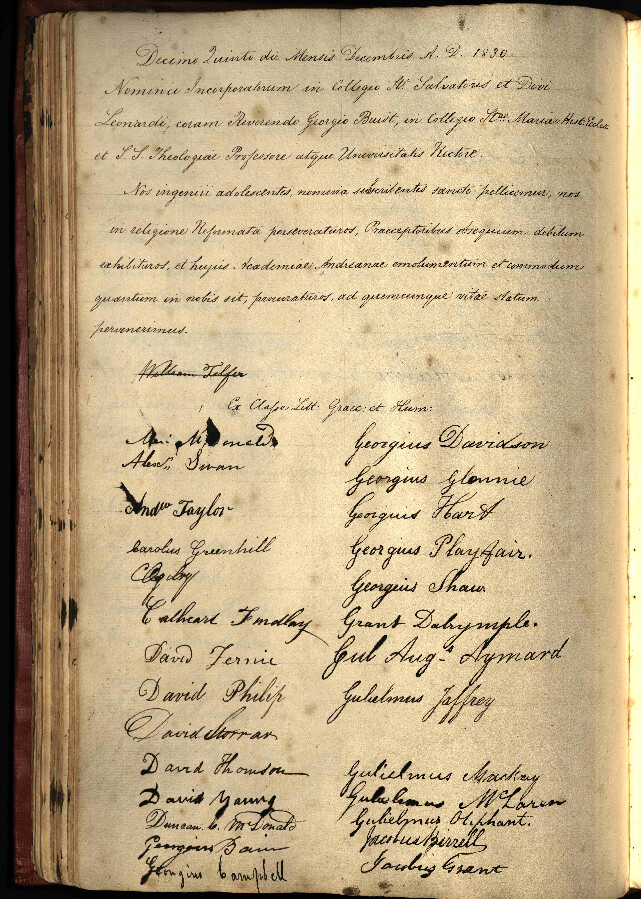 Decimo Quinto die Mensis Decembris A. D. 1830
Nomina Incorporatorum in Collegio Sti. Salvatoris et Divi
Leonardi, coram Reverendo Georgio Buist, in Collegio Stae Mariae Hist: Eccles:
et S. S. Theologiae Professore atque Universitatis Rectore.
Nos ingenui adolescentes, nomina subscribentes sancte pollicemur, nos
in religione Reformata perseveraturos, Praeceptoribus obsequium debitum
exhibituros, et hujus Academiae Andreanae emolumentum et commodum
quantum in nobis sit, procuraturos, ad quemcunque vitae statum
pervenerimus.
William Telfer
Ex Classe Litt: Graec: et Hum:
Alexr. Swan
Andw Taylor
Carolus Greenhill
C Ogilvy
Cathcart Findlay
David Fernie
David Philip
David Storrar
David Thomson
David Young
Duncan C. McDonald
Georgius Bain
Georgius Campbell
Georgius Davidson
Georgius Glennie
Georgius Hart
Georgius Playfair.
Georgius Shaw
Grant Dalrymple.
Gul Augs Aymard
Gulielmus Jaffrey
Gulielmus Mackay
Gulielmus McLaren
Gulielmus Oliphant.
Jacobus Berrell
Jacobus Grant